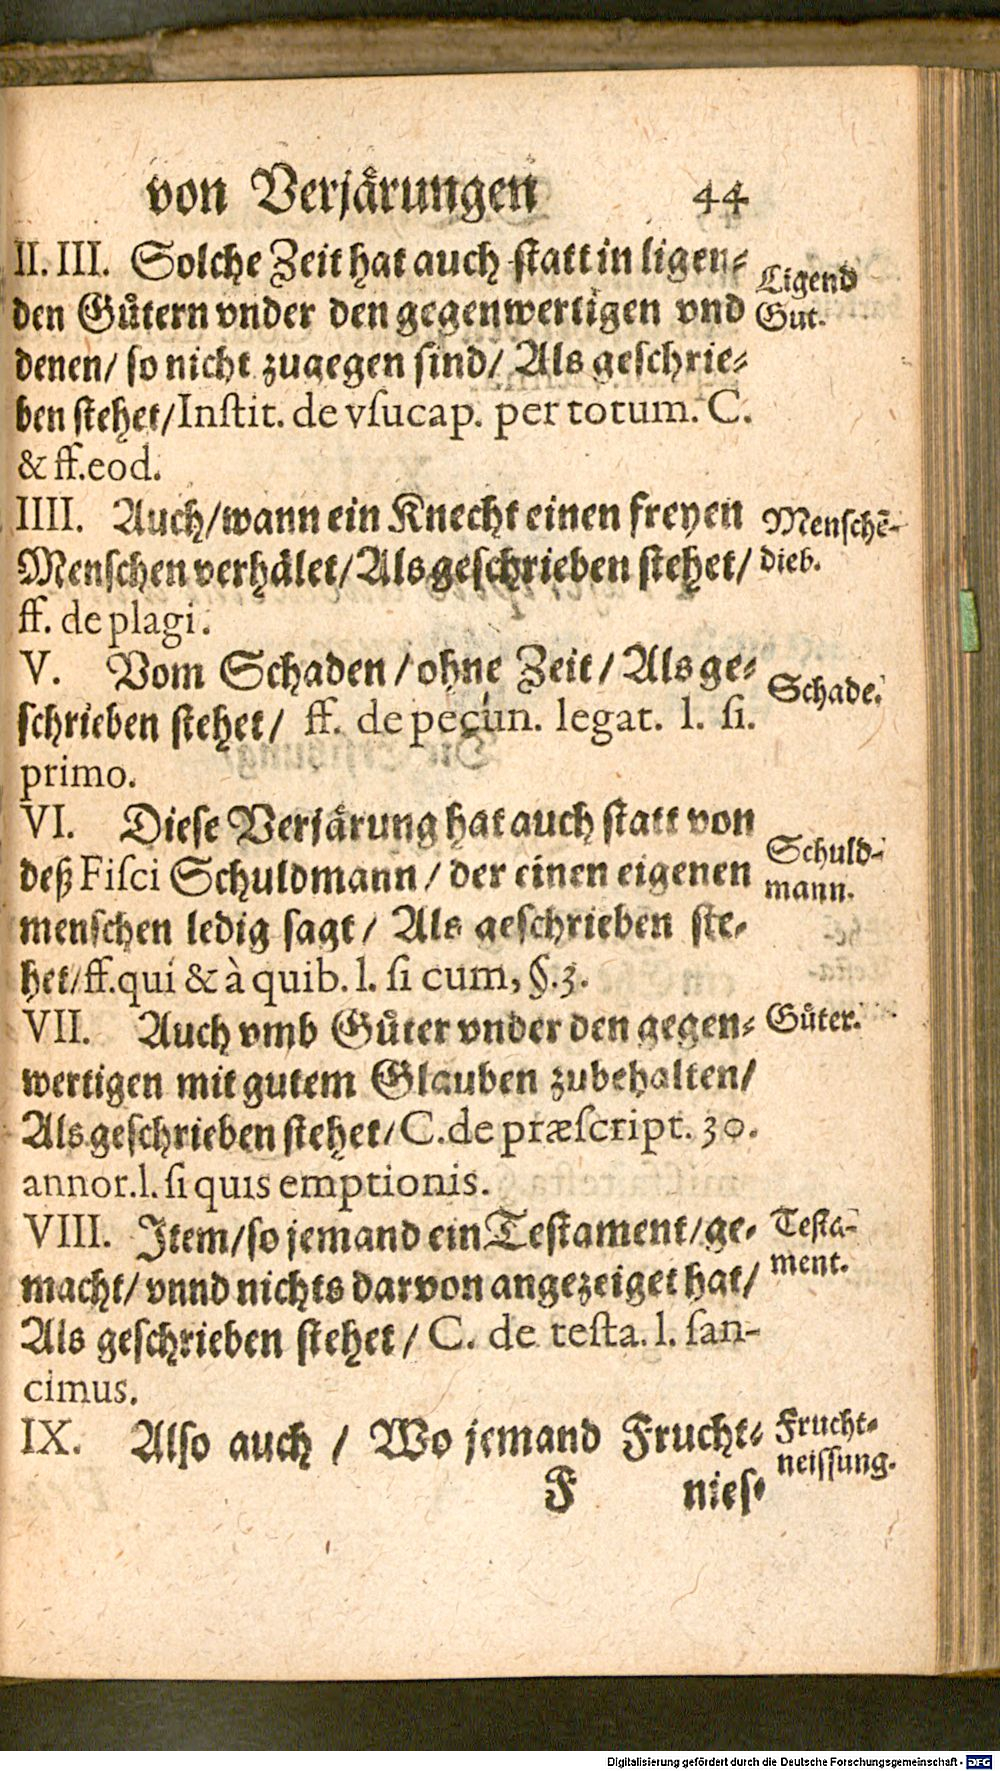 von Verjårungen 44
II. III. Solche Zeit hat auch statt in ligen⸗
den Gůtern vnder den gegenwertigen vnd
denen/ so nicht zugegen sind/ Als geschrie⸗
ben stehet/ Inſtit. de vſucap. per totum. C.
& ff. eod.
Ligend
Gut.
IIII. Auch/ wann ein Knecht einen freyen
Menschen verhålet/ Als geschrieben stehet/
ff. de plagi.
Menschē⸗
dieb.
V. Vom Schaden / ohne Zeit/ Als ge⸗
schrieben stehet/ ff. de pecun. legat. l. ſi.
primo.
Schade.
VI. Diese Verjårung hat auch statt von
deß Fiſci Schuldmann/ der einen eigenen
menschen ledig sagt/ Als geschrieben ste⸗
het/ ff. qui & à quib. l. ſi cum, §. 3.
Schuld⸗
mann.
VII. Auch vmb Gůter vnder den gegen⸗
wertigen mit gutem Glauben zubehalten/
Als geschrieben stehet/ C. de præſcript. 30.
annor. l. ſi quis emptionis.
Gůter.
VIII. Item/ so jemand ein Testament/ ge⸗
macht/ vnnd nichts darvon angezeiget hat/
Als geschrieben stehet/ C. de teſta. l. ſan-
cimus.
Testa⸗
ment.
IX. Also auch / Wo jemand Frucht⸗
Frucht⸗
neissung.
F nies⸗
Digitalisierung gefördert durch die Deutsche Forschungsgemeinschaft - DFG